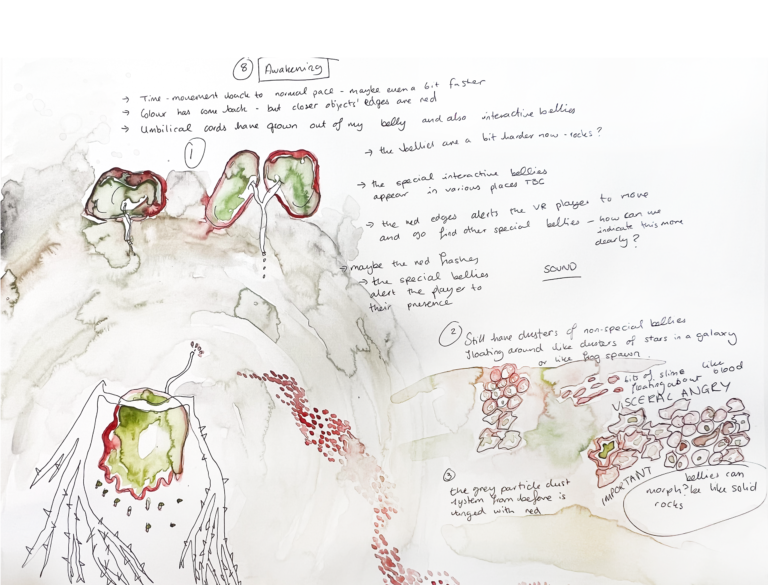 8 Awakening
→ Time-movement back to normal pace - maybe even a bit faster
→ Colour has come back - but closer objects' edges are red
→ Umbilical cords have grown out of my belly and also interactive bellies
→ the bellies are a bit harder now - rocks?
1
→ the special interactive bellies
appear in various places TBC
→ the red edges alerts the VR player to move
and go find other special bellies - how can we
indicate this more
clearly?
→ maybe the red flashes
SOUND
→ the special bellies
alert the player to
their presence
2 Still have clusters of non-special bellies
floating around like clusters of stars in a galaxy
or like frog spawn.
bits of slime like
floating about blood
VISCERAL ANGRY
3
the grey particle dust
system from before is
tinged with red
IMPORTANT
bellies can
morph? be like solid
rocks